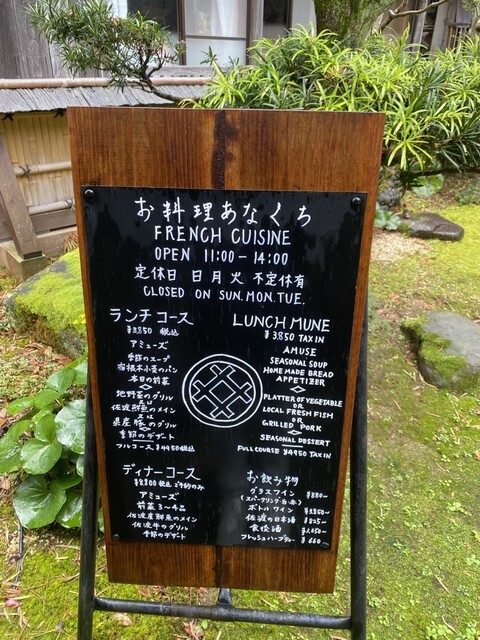 お料理あなぐち
FRENCH CUISINE
OPEN 11:00-14:00
定休日 日月火 不定休有
CLOSED ON SUN.MON.TUE.
ランチコース
¥3,850 税込
アミューズ
季節のスープ
羽根木小麦のパン
本日の前菜
地野菜のグリル
又は
佐渡鮮魚のメイン
又は
県産豚のグリル
季節のデザート
フルコース ¥4950税込
LUNCH MUNE
¥3,850 TAX IN
AMUSE
SEASONAL SOUP
HOME MADE BREAD
APPETIZER
PLATTER OF VEGETABLE
OR
LOCAL FRESH FISH
OR
GRILLED PORK
SEASONAL DESSERT
FULL COURSE ¥4950 TAX IN
ディナーコース
¥8,800 税込 ご予約のみ
アミューズ
前菜3〜4品
佐渡産鮮魚のメイン
佐渡牛のグリル
季節のデザート
お飲み物
グラスワイン ¥880〜
(スパークリング・白・赤)
ボトルワイン ¥3,850〜
佐渡の日本酒 ¥825〜
食後酒
フレッシュハーブティー ¥660